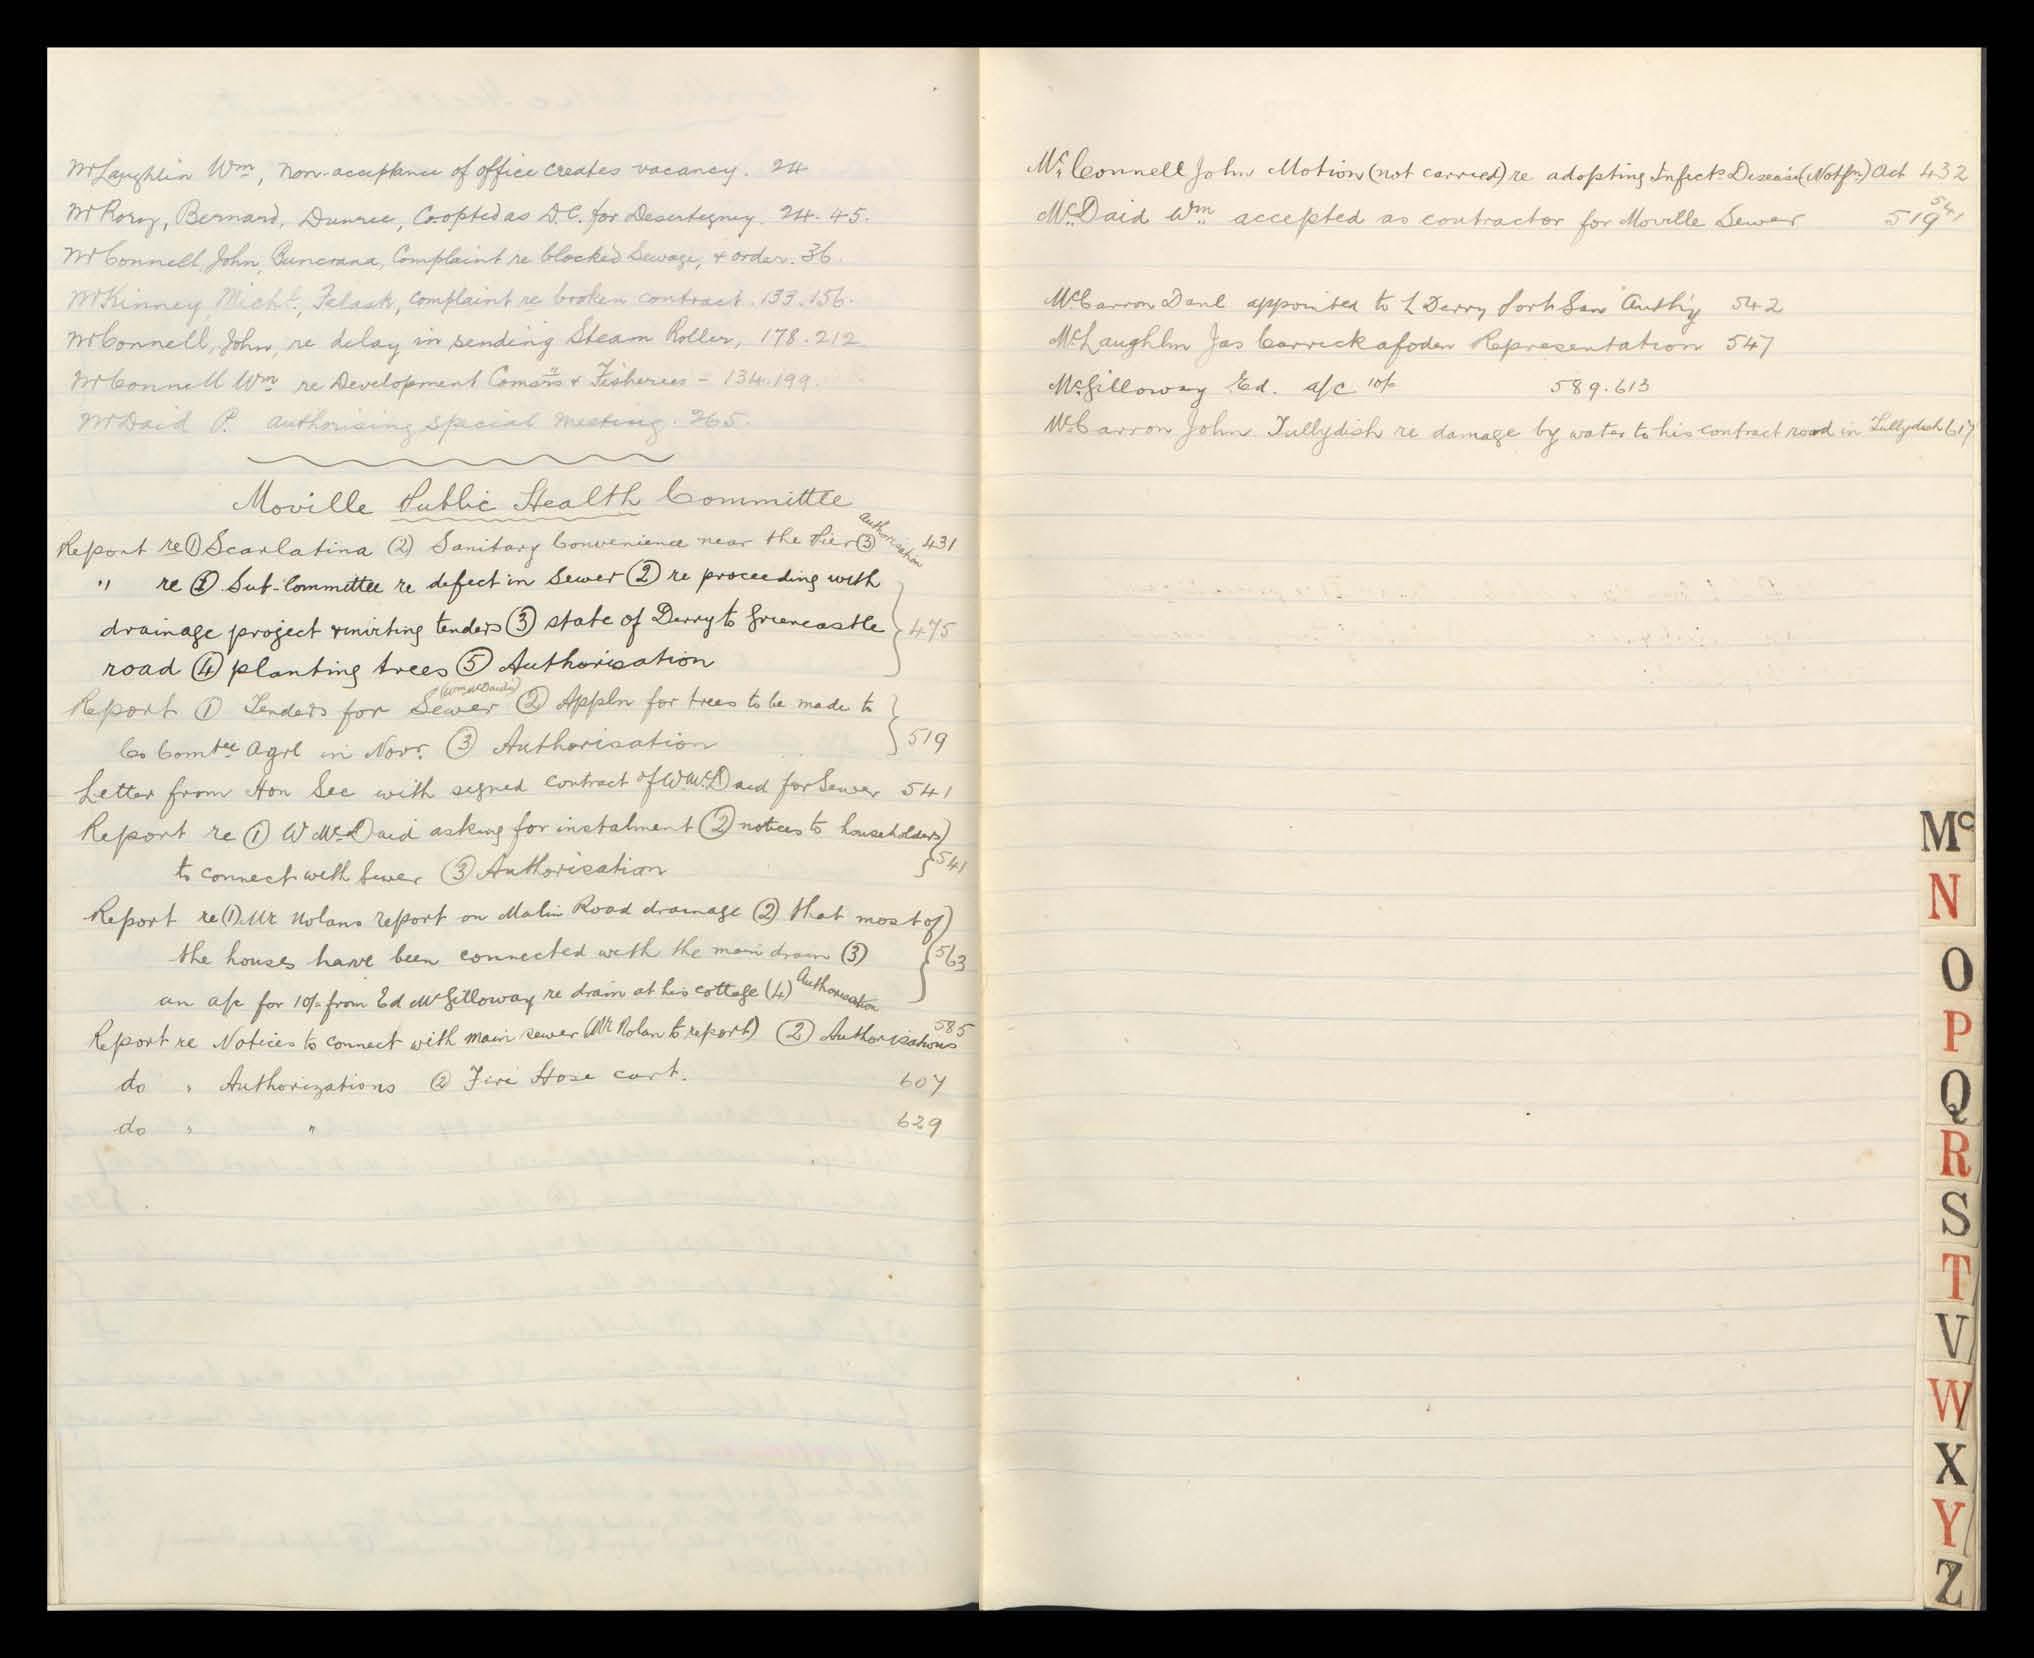 McLaughlin Wm, Non-acceptance of office creates vacancy. 24
McRory, Bernard, Dunree, Coopted as D.C. for Desertegney. 24. 45.
McConnell, John, Buncrana, Complaint re blocked Sewage, & order. 36.
McKinney, Michl., Felask, complaint re broken contract. 133. 156.
McConnell, John, re delay in sending Steam Roller, 178. 212
McConnell Wm re Development Comsrs & Fisheries - 134. 199.
McDaid P. authorising special meeting. 265.
Moville Public Health Committee
Report re (1) Scarlatina (2) Sanitary Convenience near the Pier (3) authorisation 431
" re (1) Sub-Committee re defect in Sewer (2) re proceeding with
drainage project & inviting tenders (3) state of Derry to Greencastle
road (4) planting trees (5) Authorisation } 475
Report (1) Tenders for Sewer (Wm McDaids) (2) Appln for trees to be made to
Co Comtee Agrl in Novr. (3) Authorisation } 519
Letter from Hon Sec with signed contract of W McDaid for Sewer 541
Report re (1) W McDaid asking for instalment (2) notices to householders
to connect with Sewer (3) Authorisation } 541
Report re (1) Mr Nolans report on Malin Road drainage (2) that most of
the houses have been connected with the main drain (3) } 563
an a/c for 10/- from Ed McGilloway re drain at his cottage (4) Authorisation
Report re Notices to connect with main sewer (Mr Nolan to report) (2) Authorisations 585
do " Authorizations (2) Fire Hose cart. 607
do " " 629
McConnell John Motion (not carried) re adopting Infects Disease (Notfn) Act 432
McDaid Wm accepted as contractor for Moville Sewer 519 541
McCarron Danl appointed to L Derry Port San Authy 542
McLaughlin Jas Carrickafoden Representation 547
McGilloway Ed. a/c 10/- 589. 613
McCarron John Tullydish re damage by water to his contract road in Tullydish 617
Mc
N
O
P
Q
R
S
T
V
W
X
Y
Z